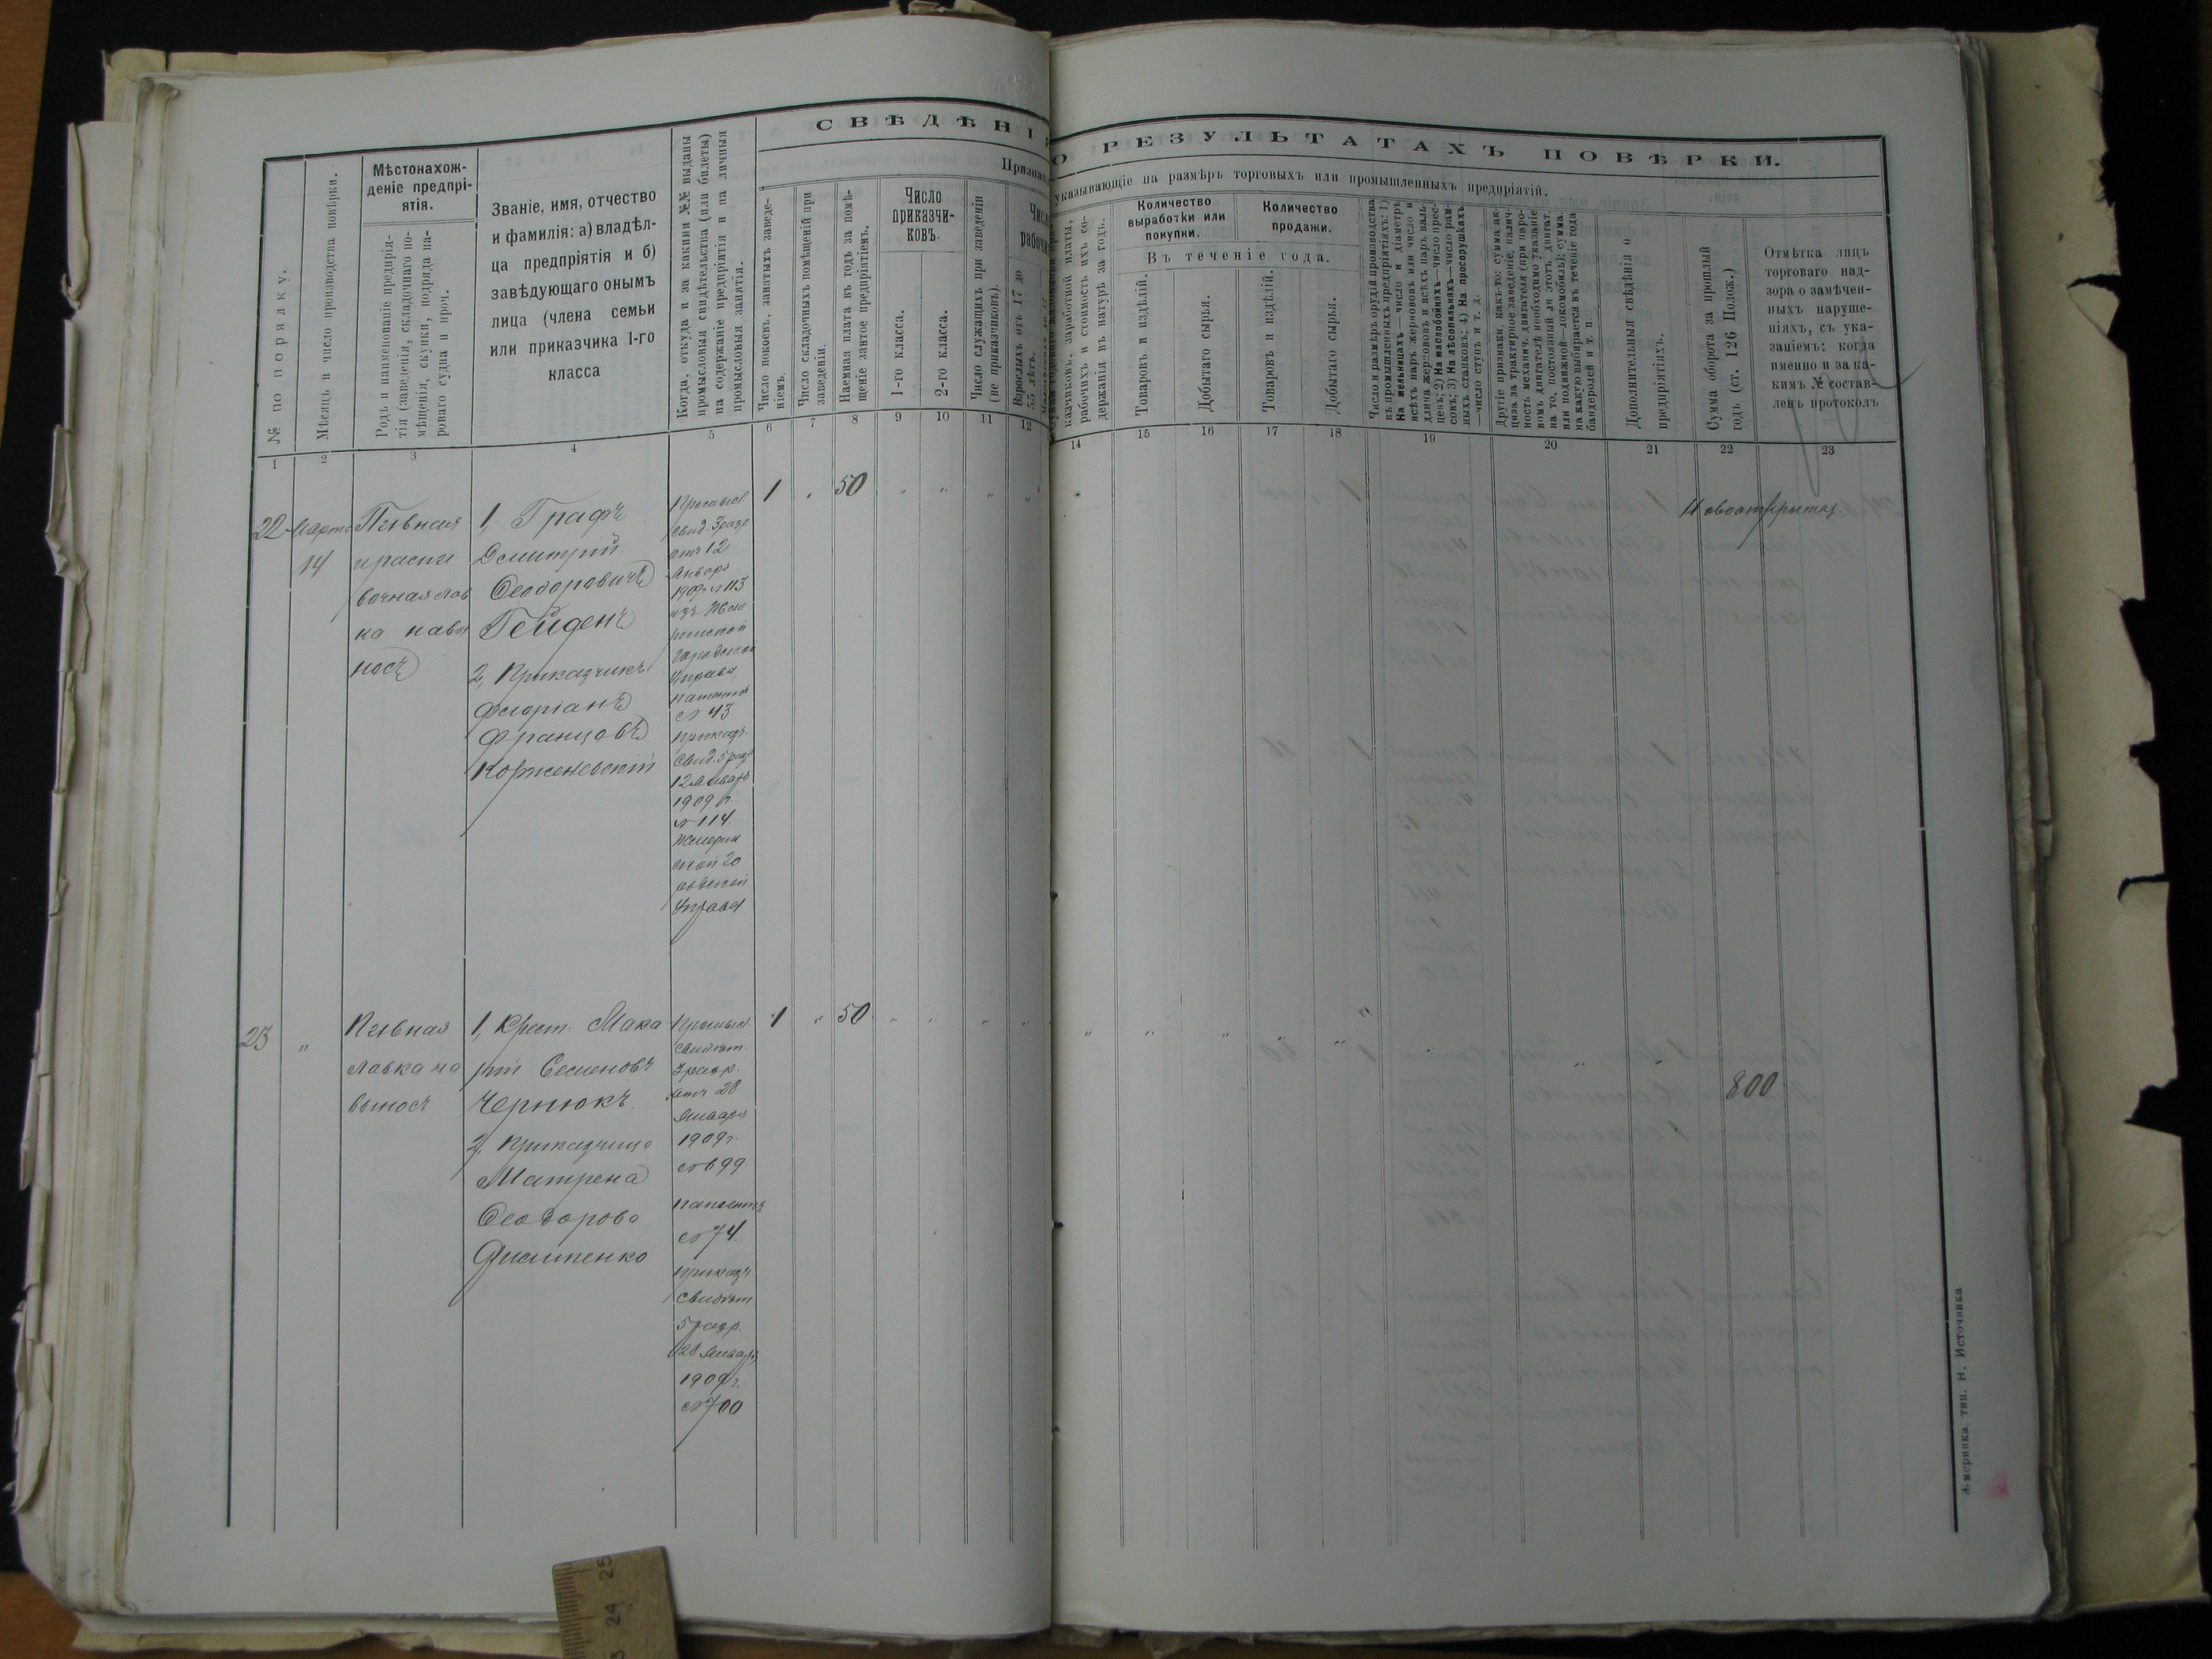 СВѢДѢНІЯ О РЕЗУЛЬТАТАХЪ ПОВѢРКИ.
Признаки, указывающіе на размѣръ торговыхъ или промышленныхъ предпріятій.
№ по порядку.
Мѣсяцъ и число производства повѣрки.
Мѣстонахож-
деніе предпрі-
ятія.
Родъ и наименованіе предпрія-
тія (заведенія, складочнаго по-
мѣщенія, скупки, подряда па-
роваго судна и проч.
Званіе, имя, отчество
и фамилія: а) владѣл-
ца предпріятія и б)
завѣдующаго онымъ
лица (члена семьи
или приказчика 1-го
класса
Когда, откуда и за какими №№ выданы
промысловыя свидѣтельства (или билеты)
на содержаніе предпріятія и на личныя
промысловыя занятія.
Число покоевъ, занятыхъ заведе-
ніемъ.
Число складочныхъ помѣщеній при
заведеніи.
Наемная плата въ годъ за помѣ-
щеніе занятое предпріятіемъ.
Число
приказчи-
ковъ.
1-го класса.
2-го класса.
Число служащихъ при заведеніи
(не приказчиковъ).
Взрослыхъ отъ 17 до
55 лѣтъ.
казчиковъ, заработной платы,
рабочихъ и стоимость ихъ со-
держанія въ натурѣ за годъ.
Количество
выработки или
покупки.
Количество
продажи.
Въ теченіе года.
Товаровъ и издѣлій.
Добытаго сырья.
Товаровъ и издѣлій.
Добытаго сырья.
Число и размѣръ орудій производства
въ промышленныхъ предпріятіяхъ: 1)
На мельницахъ—число и діаметръ
всѣхъ паръ жернововъ или число и
длина жернововъ и всѣхъ паръ валь-
цевъ; 2) На маслобойняхъ—число прес-
совъ; 3) На лѣсопильняхъ—число рам-
ныхъ станковъ; 4) На просорушкахъ
—число ступъ и т. д.
Другіе признаки какъ-то: сумма ак-
циза за трактирное заведеніе, налич-
ность механич. двигателя (при паро-
вомъ двигателѣ необходимо указаніе
на то, постоянный ли этотъ двигат.
или подвижной—локомобиль); сумма
на какую выбирается въ теченіе года
бандеролей и т. п.
Дополнительныя свѣдѣнія о
предпріятіяхъ.
Сумма оборота за прошлый
годъ (ст. 126 Полож.)
Отмѣтка лицъ
торговаго над-
зора о замѣчен-
ныхъ наруше-
ніяхъ, съ ука-
заніемъ: когда
именно и за ка-
кимъ № состав-
ленъ протоколъ
1 2 3 4 5 6 7 8 9 10 11 12 14 15 16 17 18 19 20 21 22 23
22 Марта
14
Пивная
и распи
вочная лав
ка
носъ
1, Графъ
Дмитрій
Ѳеодоровичъ
Гейденъ
2, Приказчикъ
Флоріанъ
Францовъ
Корженевскій
Промысл.
свид. 3 разр
отъ 12
Января
1909 г №113
изъ Жме
ринской
городской
Управы,
патентъ
№ 43.
приказч.
свид. 5 разр
12 Января
1909 г.
№ 114.
Жмерин
ской го
родской
Управы
1 " 50 " " " "
Новооткрытая.
23 "
Пивная
лавка на
выносъ
1, Крест. Мака
рій Семеновъ
Чернюкъ
2, Приказчица
Матрена
Ѳеодорова
Промысл.
свидѣт.
3 разр.
отъ 28
Января
1909 г.
№ 699
патентъ
№ 74.
приказч
свидѣт
5 разр.
28 Января
1909 г.
№ 700
1 " 50 " " " " " " " " " " " "
800
Жмеринка. тип. Н. Источника
25
24